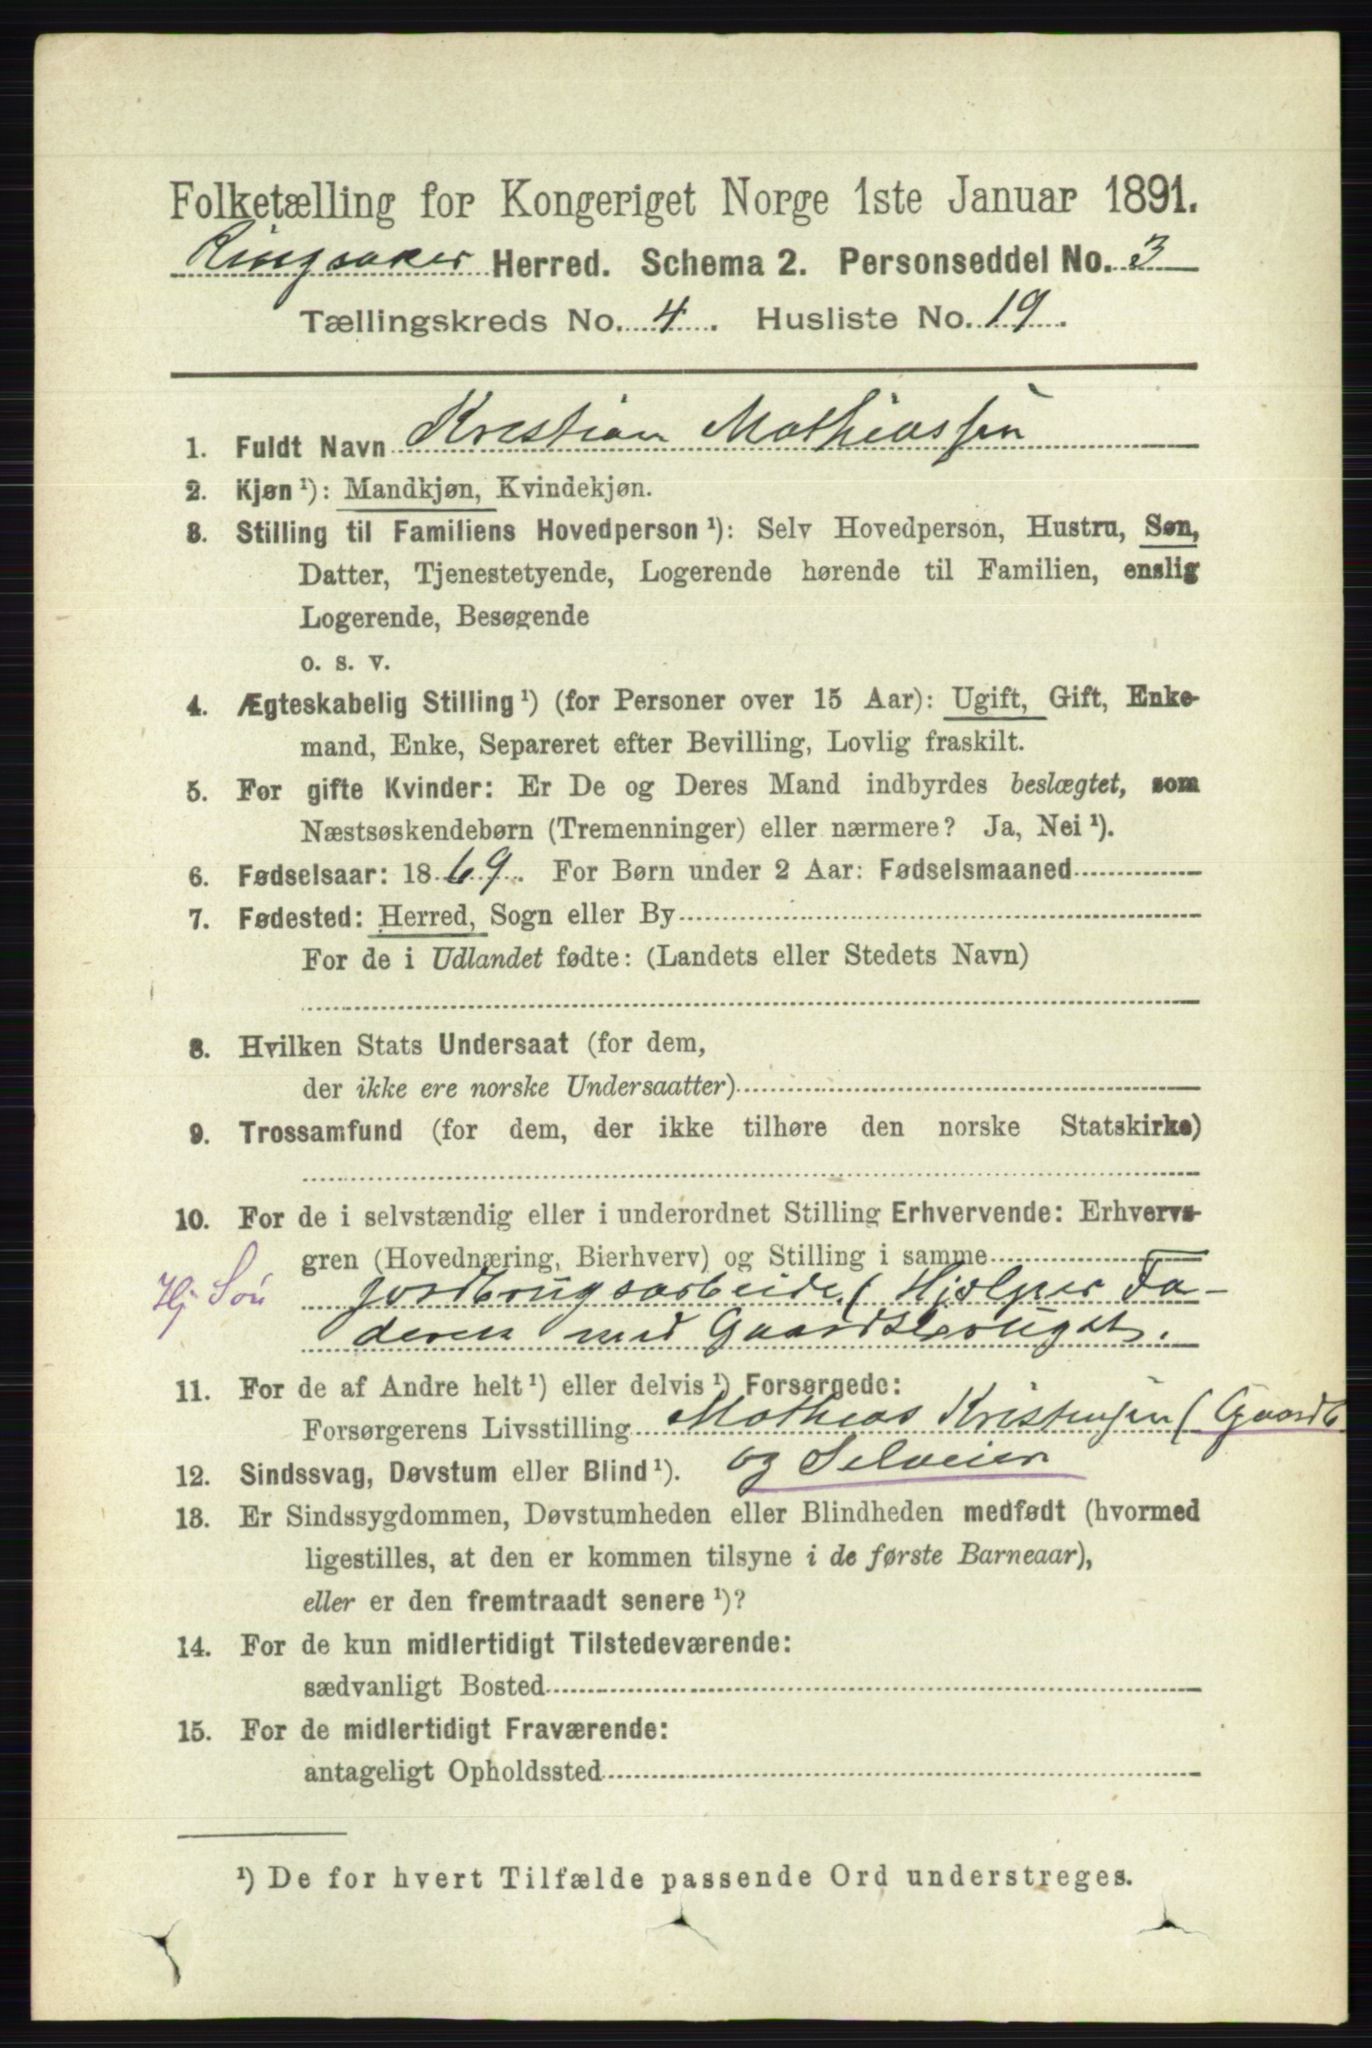 Folketælling for Kongeriget Norge 1ste Januar 1891.
Ringsaker Herred. Schema 2. Personseddel No. 3
Tællingskreds No. 4. Husliste No. 19.
1. Fuldt Navn Kristian Mathiassen
2. Kjøn ¹): Mandkjøn, Kvindekjøn.
3. Stilling til Familiens Hovedperson ¹): Selv Hovedperson, Hustru, Søn,
Datter, Tjenestetyende, Logerende hørende til Familien, enslig
Logerende, Besøgende
o. s. v.
4. Ægteskabelig Stilling ¹) (for Personer over 15 Aar): Ugift, Gift, Enke-
mand, Enke, Separeret efter Bevilling, Lovlig fraskilt.
5. For gifte Kvinder: Er De og Deres Mand indbyrdes beslægtet, som
Næstsøskendebørn (Tremenninger) eller nærmere? Ja, Nei ¹).
6. Fødselsaar: 1869. For Børn under 2 Aar: Fødselsmaaned
7. Fødested: Herred, Sogn eller By
For de i Udlandet fødte: (Landets eller Stedets Navn)
8. Hvilken Stats Undersaat (for dem,
der ikke ere norske Undersaatter)
9. Trossamfund (for dem, der ikke tilhøre den norske Statskirke)
10. For de i selvstændig eller i underordnet Stilling Erhvervende: Erhvervs-
gren (Hovednæring, Bierhverv) og Stilling i samme
Hj Søn jordbrugsarbeide (Hjelper Fa-
deren med Gaardsbruget.
11. For de af Andre helt ¹) eller delvis ¹) Forsørgede:
Forsørgerens Livsstilling Mathias Kristensen (Gaardb
og Selveier
12. Sindssvag, Døvstum eller Blind ¹).
13. Er Sindssygdommen, Døvstumheden eller Blindheden medfødt (hvormed
ligestilles, at den er kommen tilsyne i de første Barneaar),
eller er den fremtraadt senere ¹)?
14. For de kun midlertidigt Tilstedeværende:
sædvanligt Bosted
15. For de midlertidigt Fraværende:
antageligt Opholdssted
¹) De for hvert Tilfælde passende Ord understreges.